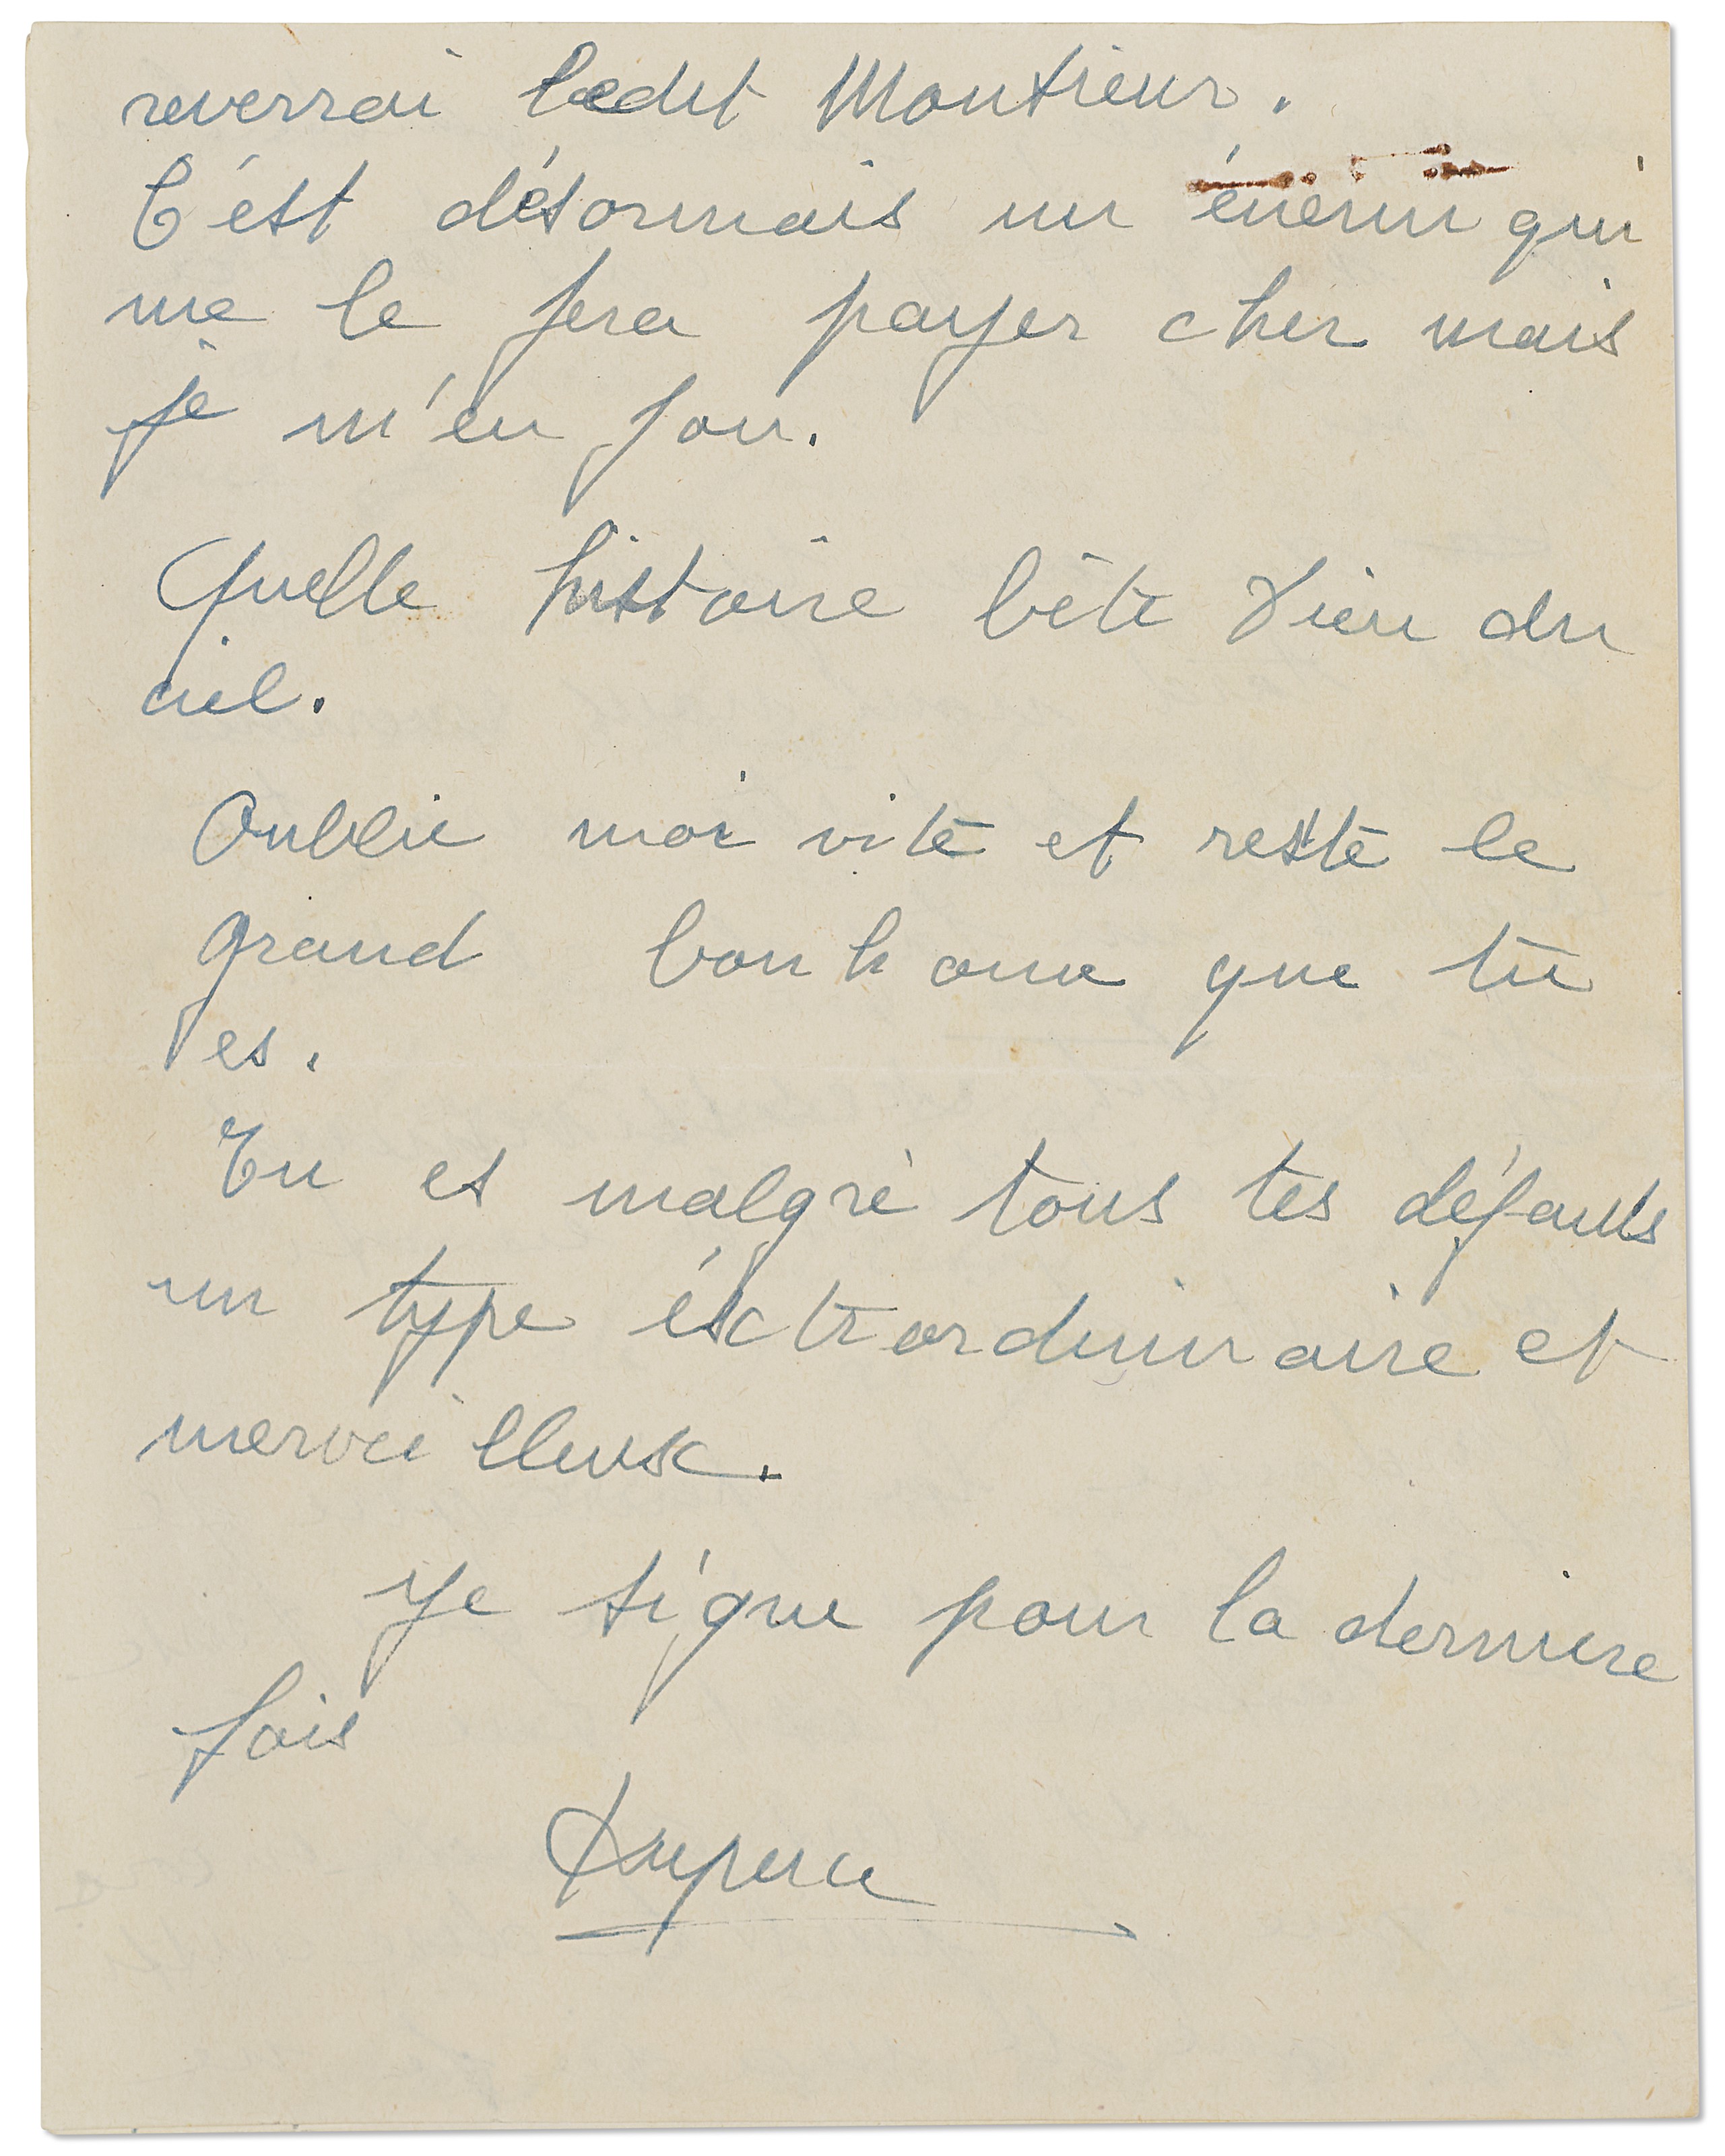 reverrai ledit Monsieur.
C'est désormais un énemi qui
me le fera payer cher mais
je m'en fou.
Quelle histoire bête Dieu du
ciel.
Oublie moi vite et reste le
grand bonhome que tu
es.
Tu es malgré tous tes défauts
un type éxtrordinnaire et
merveilleux.
Je signe pour la derniere
fois